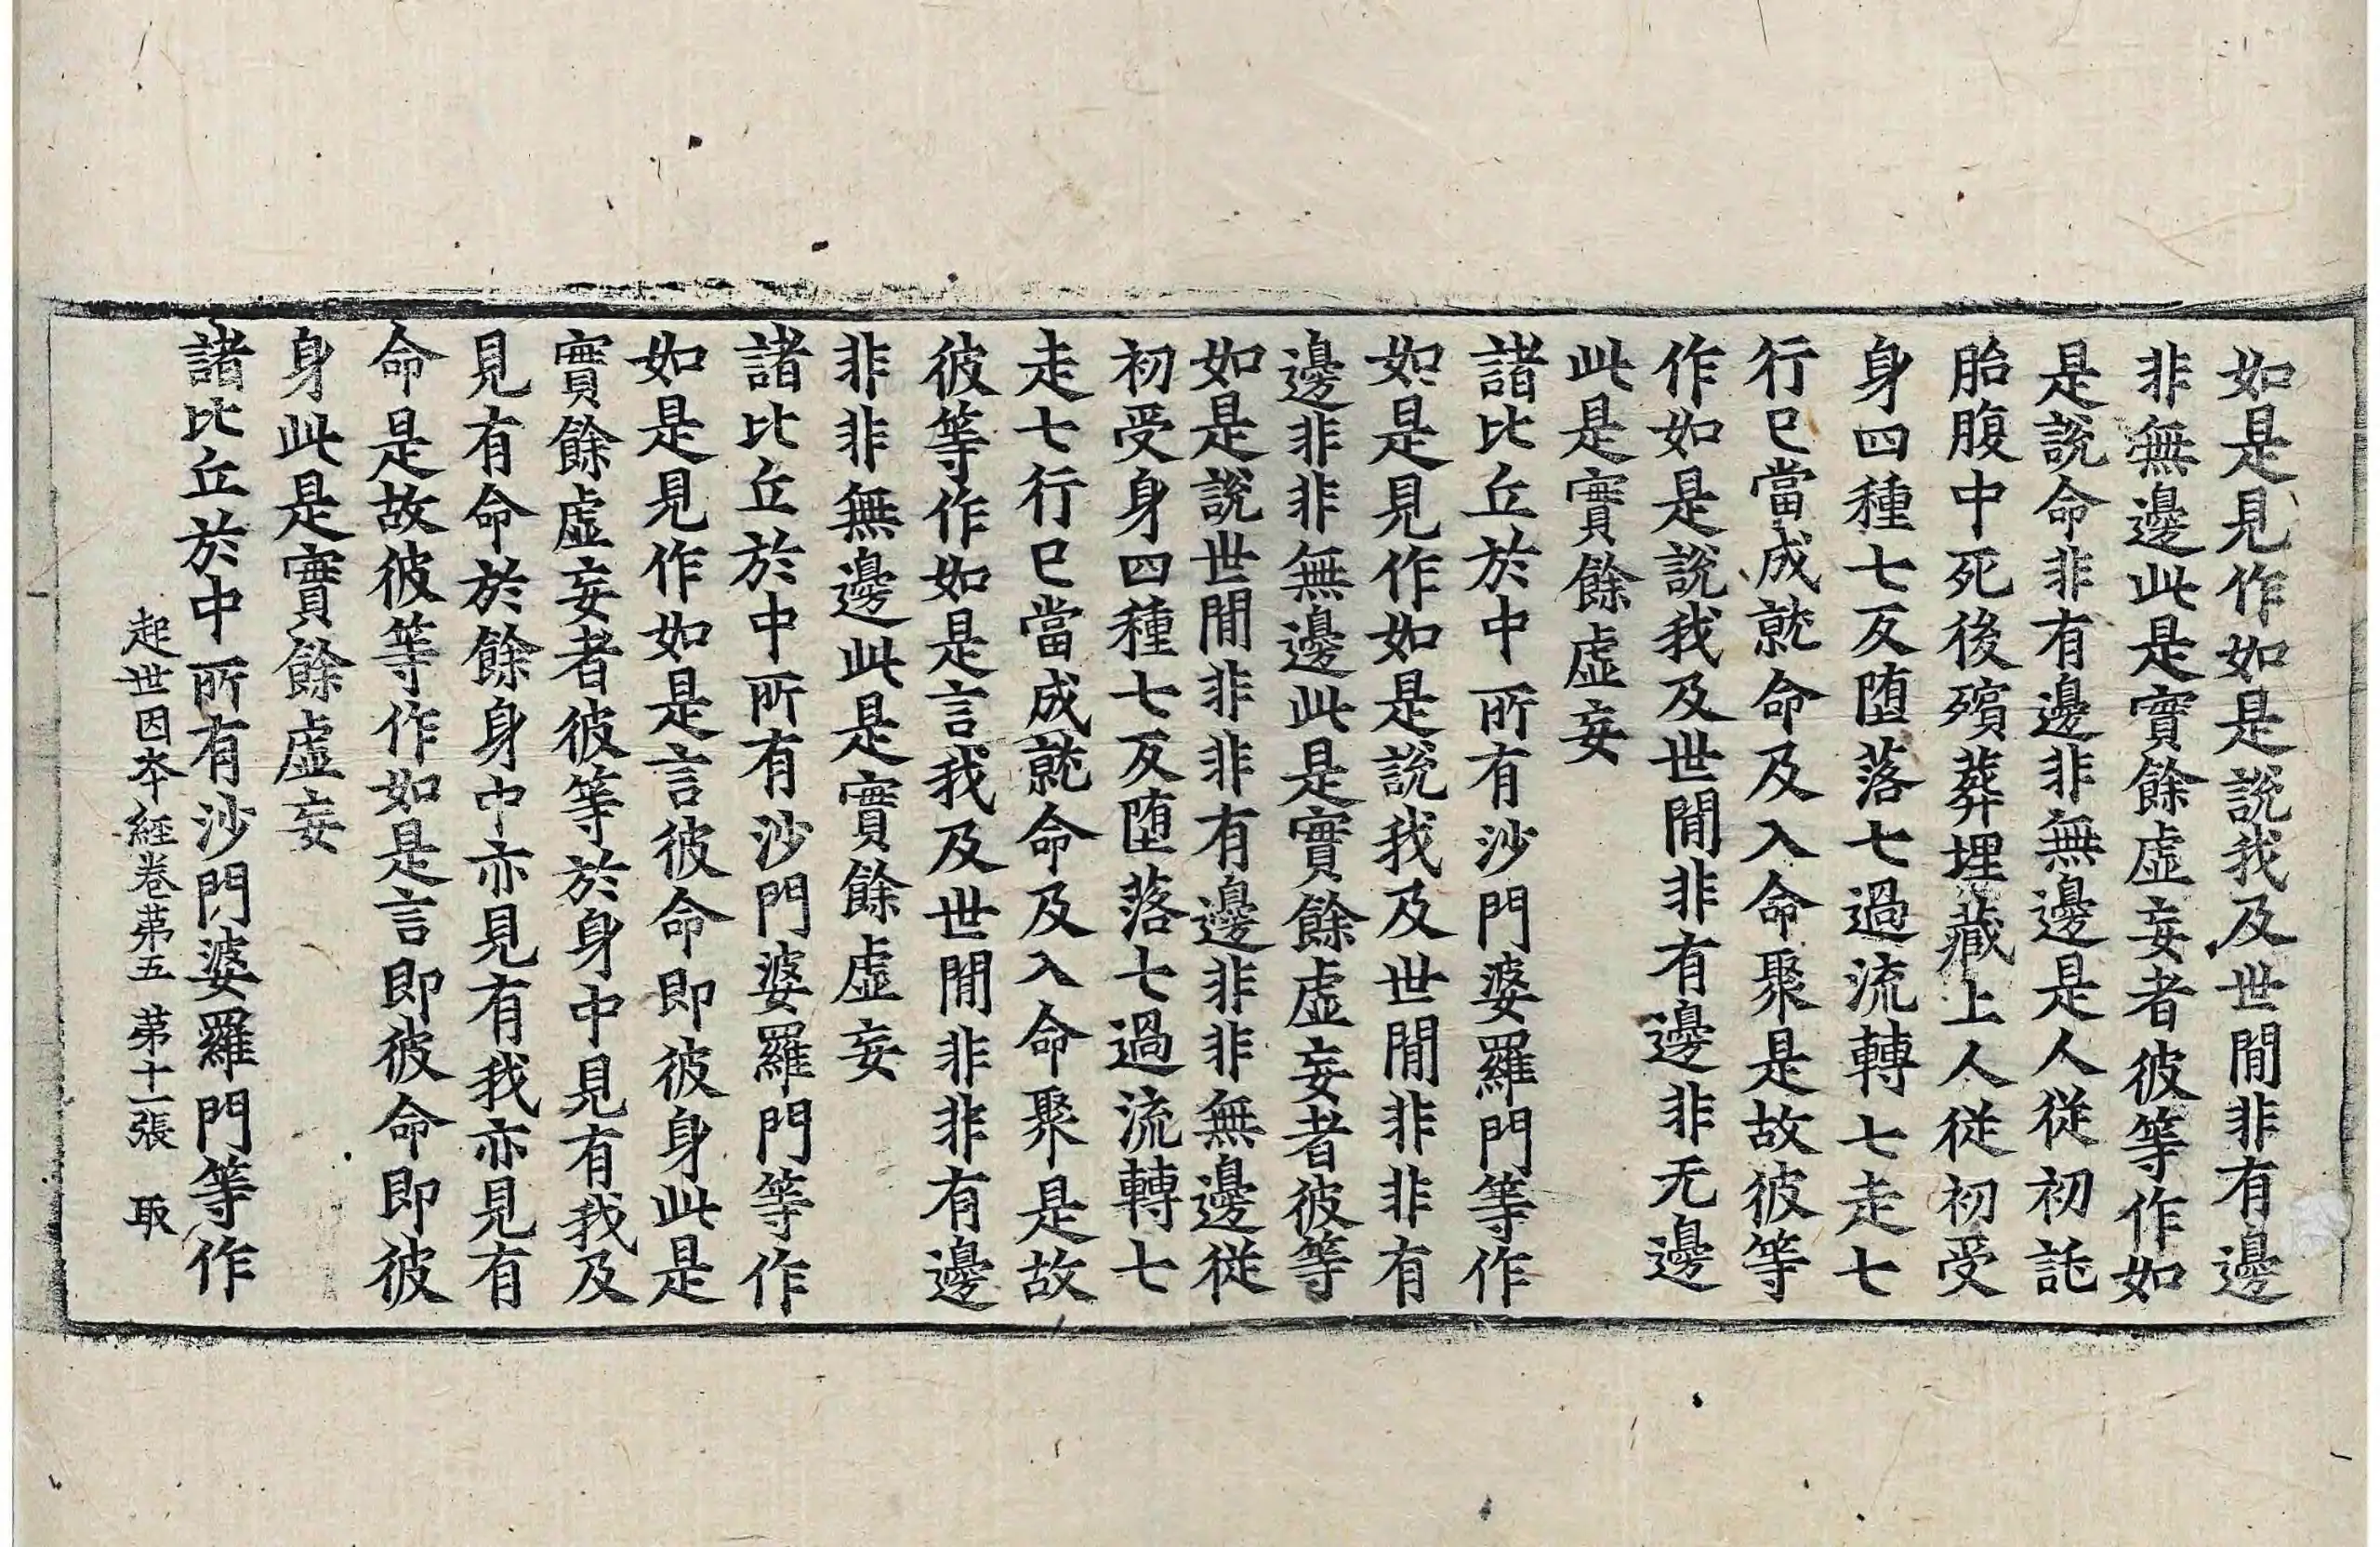 如是見作如是說我及世間非有邊
非無邊此是實餘虛妄者彼等作如
是說命非有邊非無邊是人從初託
胎腹中死後殯葬埋藏上人從初受
身四種七反堕落七過流轉七走七
行已當成就命及入命聚是故彼等
作如是說我及世間非有邊非无邊
此是實餘虛妄
諸比丘於中所有沙門婆羅門等作
如是見作如是說我及世間非非有
邊非非無邊此是實餘虛妄者彼等
如是說世間非非有邊非非無邊從
初受身四種七反堕落七過流轉七
走七行已當成就命及入命聚是故
彼等作如是言我及世間非非有邊
非非無邊此是實餘虛妄
諸比丘於中所有沙門婆羅門等作
如是見作如是言彼命即彼身此是
實餘虛妄者彼等於身中見有我及
見有命於餘身中亦見有我亦見有
命是故彼等作如是言即彼命即彼
身此是實餘虛妄
諸比丘於中所有沙門婆羅門等作
起世因夲經卷苐五 苐十一張 取